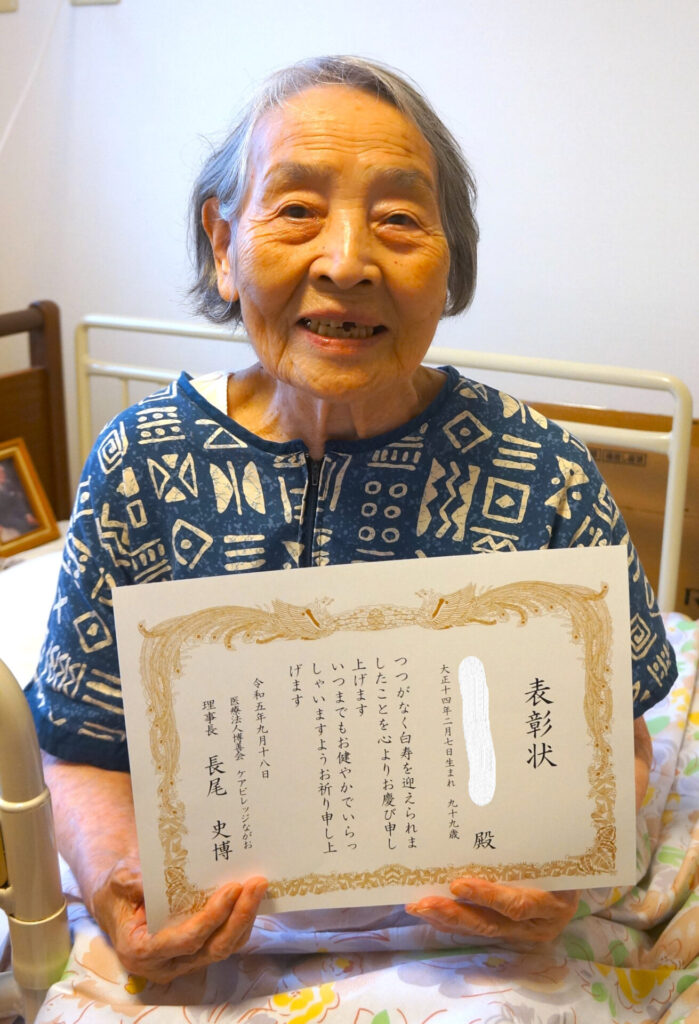 表彰状
殿
大正十四年二月七日生まれ 九十九歳
つつがなく白寿を迎えられま
したことを心よりお慶び申し
上げます
いつまでもお健やかでいらっ
しゃいますようお祈り申し上
げます
令和五年九月十八日
医療法人博善会 ケアビレッジながお
理事長 長尾 史博